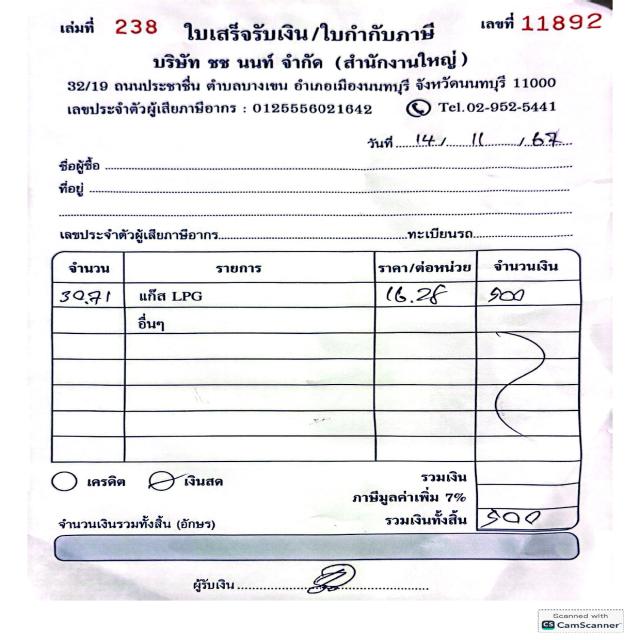 เล่มที่ 238 ใบเสร็จรับเงิน/ใบกำกับภาษี เลขที่ 11892
บริษัท ชช นนท์ จำกัด (สำนักงานใหญ่)
32/19 ถนนประชาชื่น ตำบลบางเขน อำเภอเมืองนนทบุรี จังหวัดนนทบุรี 11000
เลขประจำตัวผู้เสียภาษีอากร : 0125556021642 Tel.02-952-5441
วันที่ 14 / 11 / 67
ชื่อผู้ซื้อ
ที่อยู่
เลขประจำตัวผู้เสียภาษีอากร ทะเบียนรถ
จำนวน รายการ ราคา/ต่อหน่วย จำนวนเงิน
30.71 แก๊ส LPG 16.28 500
อื่นๆ
เครดิต เงินสด รวมเงิน
ภาษีมูลค่าเพิ่ม 7%
จำนวนเงินรวมทั้งสิ้น (อักษร) รวมเงินทั้งสิ้น 500
ผู้รับเงิน
Scanned with
CS CamScanner